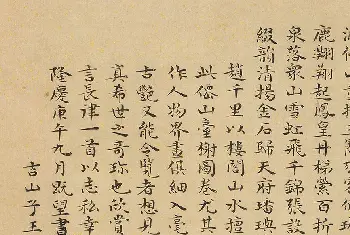 鹿翔翔起鳳皇丹梯縈百折
泉落衆山雪虹飛千錦張設
綴韻清揚金石歸天府璠璵
趙千里以樓閣山水擅
此僊山臺榭圖卷尤其
作人物界畫俱細入毫
古艷又能令覽者想見
真希世之奇珍也欣賞
言長律一首以志私幸
隆慶庚午九月既望書
吉山子王